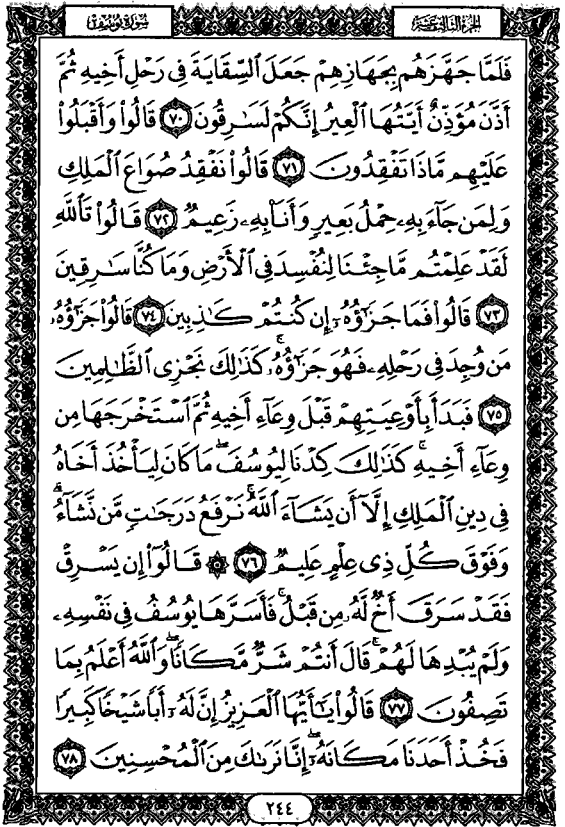 سورة يوسف
الجزء الثالث عشر
فَلَمَّا جَهَّزَهُم بِجَهَازِهِمْ جَعَلَ ٱلسِّقَايَةَ فِى رَحْلِ أَخِيهِ ثُمَّ
أَذَّنَ مُؤَذِّنٌ أَيَّتُهَا ٱلْعِيرُ إِنَّكُمْ لَسَـٰرِقُونَ ٧٠ قَالُوا۟ وَأَقْبَلُوا۟
عَلَيْهِم مَّاذَا تَفْقِدُونَ ٧١ قَالُوا۟ نَفْقِدُ صُوَاعَ ٱلْمَلِكِ
وَلِمَن جَآءَ بِهِۦ حِمْلُ بَعِيرٍ وَأَنَا۠ بِهِۦ زَعِيمٌ ٧٢ قَالُوا۟ تَٱللَّهِ
لَقَدْ عَلِمْتُم مَّا جِئْنَا لِنُفْسِدَ فِى ٱلْأَرْضِ وَمَا كُنَّا سَـٰرِقِينَ
٧٣ قَالُوا۟ فَمَا جَزَٰٓؤُهُۥٓ إِن كُنتُمْ كَـٰذِبِينَ ٧٤ قَالُوا۟ جَزَٰٓؤُهُۥ
مَن وُجِدَ فِى رَحْلِهِۦ فَهُوَ جَزَٰٓؤُهُۥ ۚ كَذَٰلِكَ نَجْزِى ٱلظَّـٰلِمِينَ
٧٥ فَبَدَأَ بِأَوْعِيَتِهِمْ قَبْلَ وِعَآءِ أَخِيهِ ثُمَّ ٱسْتَخْرَجَهَا مِن
وِعَآءِ أَخِيهِ ۚ كَذَٰلِكَ كِدْنَا لِيُوسُفَ ۖ مَا كَانَ لِيَأْخُذَ أَخَاهُ
فِى دِينِ ٱلْمَلِكِ إِلَّآ أَن يَشَآءَ ٱللَّهُ ۚ نَرْفَعُ دَرَجَـٰتٍ مَّن نَّشَآءُ ۗ
وَفَوْقَ كُلِّ ذِى عِلْمٍ عَلِيمٌ ٧٦ ۞ قَالُوٓا۟ إِن يَسْرِقْ
فَقَدْ سَرَقَ أَخٌ لَّهُۥ مِن قَبْلُ ۚ فَأَسَرَّهَا يُوسُفُ فِى نَفْسِهِۦ
وَلَمْ يُبْدِهَا لَهُمْ ۚ قَالَ أَنتُمْ شَرٌّ مَّكَانًا ۖ وَٱللَّهُ أَعْلَمُ بِمَا
تَصِفُونَ ٧٧ قَالُوا۟ يَـٰٓأَيُّهَا ٱلْعَزِيزُ إِنَّ لَهُۥٓ أَبًا شَيْخًا كَبِيرًا
فَخُذْ أَحَدَنَا مَكَانَهُۥٓ ۖ إِنَّا نَرَىٰكَ مِنَ ٱلْمُحْسِنِينَ ٧٨
٢٤٤